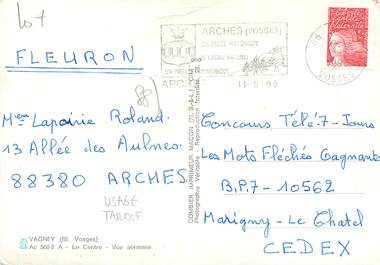 lot
FLEURON
88)
Mme Lapoirie Roland.
13 Allée des Aulnes.
88380 ARCHES
USAGE
TARDIF
VAGNEY (88. Vosges)
Ac 560-2 A - Le Centre - Vue aérienne
COMBIER IMPRIMEUR MACON (71. S.-&-L.) CIM
Photographie Véritable - Reproduction Interdite
ARCHES (VOSGES)
UN PASSÉ HISTORIQUE
UN CADRE NATUREL
11-5 99
VOSGES
Liberté
Concours Télé.7-Jours
Les Mots Fléchés Gagnants
B.P.7 - 10562
Marigny - Le Chatel
CEDEX